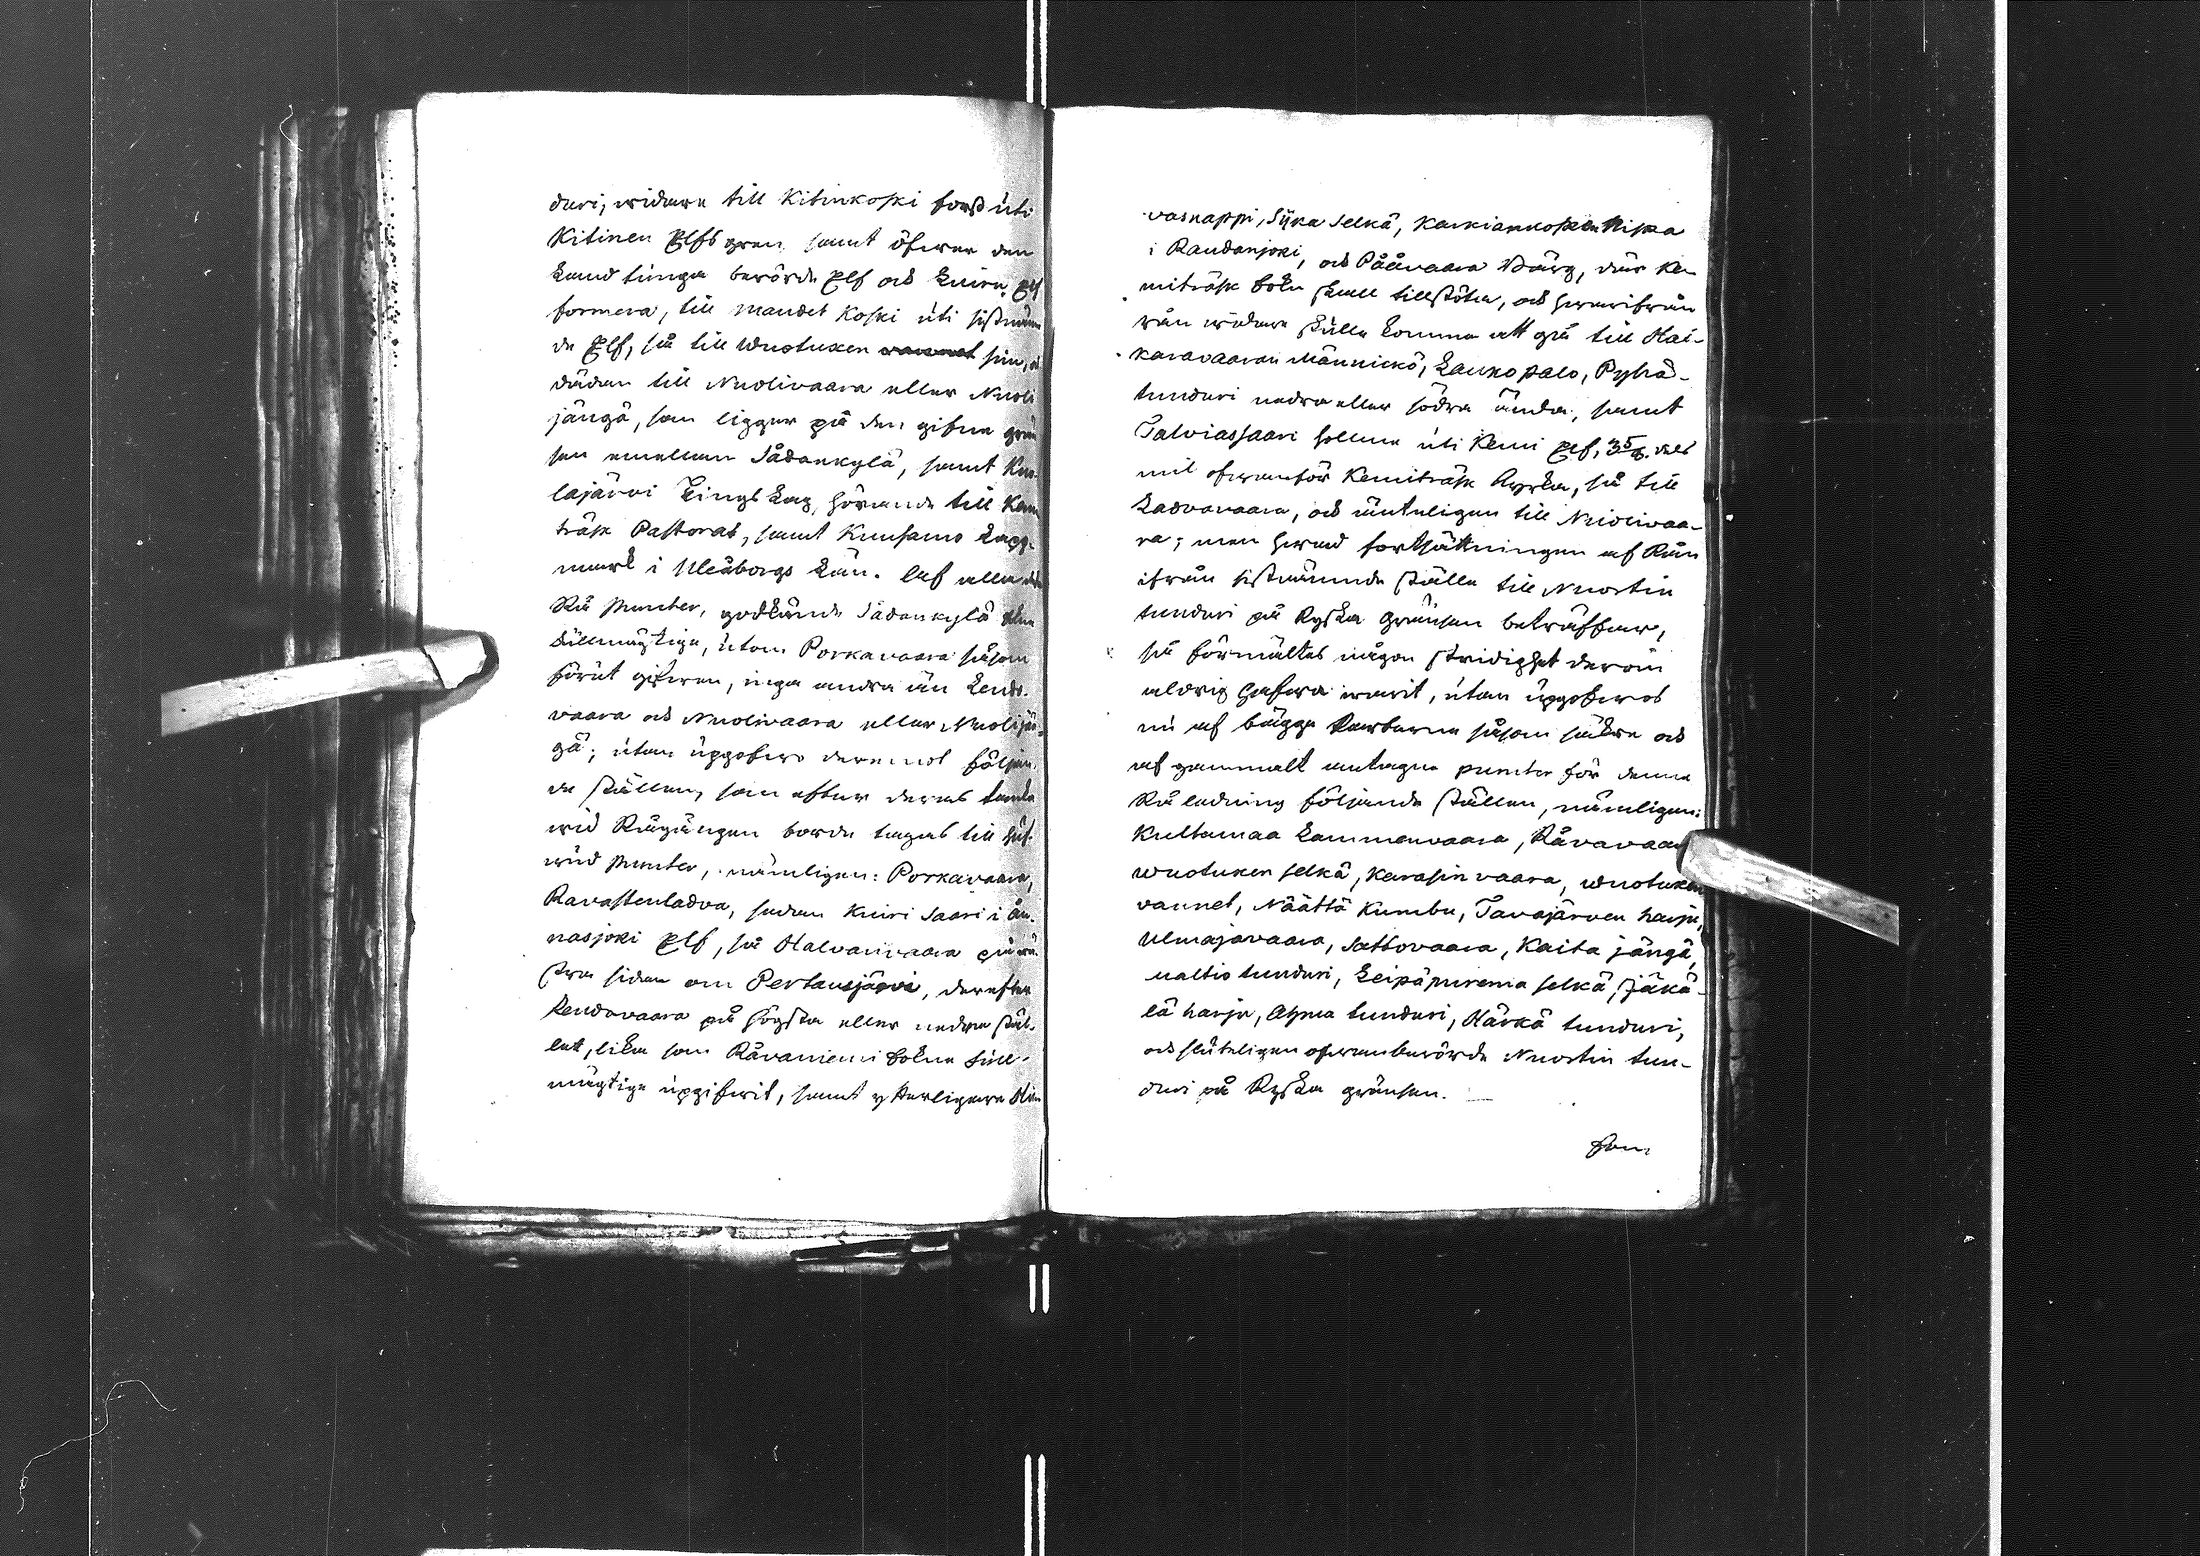 duri, widare till Kitinkoski fors uti
Kitinen Elfs gren samt öfwer den
Landtunga berörde Elf och Luiru Elf
formera, till Maudet Koski uti sistnämn
de Elf, så till Wuotusen sim,
dädan till Nuolivaara eller Nuoli
jängä, som ligger på den gifne grän
sen emellan Sådankylä, samt Kuo
lajärvi Tings Lag, hörande till Kemi
träsk Pastorat, samt Kuusamo Lapp-
mark i Uleåborgs Län. Af alla desse
Rå Puncter, godkände Sådankylä
fullmägtige, utom Porkavaara såsom
förut gifwen, inga andra än Lendo-
vaara och Nuolivaara eller Nuolijän-
gä; utan uppgofwo deremot följan-
de ställen, som efter deras tanka
wid Rågången borde tagas till huf-
wud Puncter, nämligen: Porkavaara,
Ravastenladva, sedan Kuiri Saari i Ou-
nasjoki Elf, så Halvarivaara på wä-
stra sidan om Pertausjärvi, derefter
Lendovaara på högsta eller nedre stäl-
let, lika som Råvaniemi boerne full-
mägtige uppgifwit, samt ytterligare Hir-
vasnappi, Sijka Selkä, Karkiankosken Niska
i Raudanjoki, och Påävaara Bärg, där Ke-
miträsk boerne skall tillstöta, och hwarifrån
rån widare skulle komma att gå till Hai-
karavaaran Männickö, Laukopalo, Pyhä-
tunduri nedra eller södra ända, samt
Talviassaari holme uti Kemi Elf, 3 5/8 dels
mil ofwanför Kemiträsk Kyrka, så till
Ladvavaara, och änteligen till Nuolivaa-
ra; men hwad fortsättningen af Rån
ifrån sistnämnde ställe till Nuortin
tunduri på Ryska gränsen beträffar,
så förmältes någon stridighet derom
aldrig hafwa warit, utan uppgofwos
nu af bägge Parterne såsom säkre och
af gammalt antagne puncter för denna
Råledning följande ställen, nämligen:
Kultamaa Lammenvaara, Råvavaara
Wuotusen selkä, Karasin vaara, Wuotusen
vannet, Näättä Kumbu, Tavajärven harju,
Ulmajavaara, Sattovaara, Kaita jängä,
ualtio tunduri, Leipäpurema selkä, Jäkä-
lä harju, Ahma tunduri, Härkä tunduri,
och sluteligen ofwanberörde Nuortin tun-
duri på Ryska gränsen.
Som